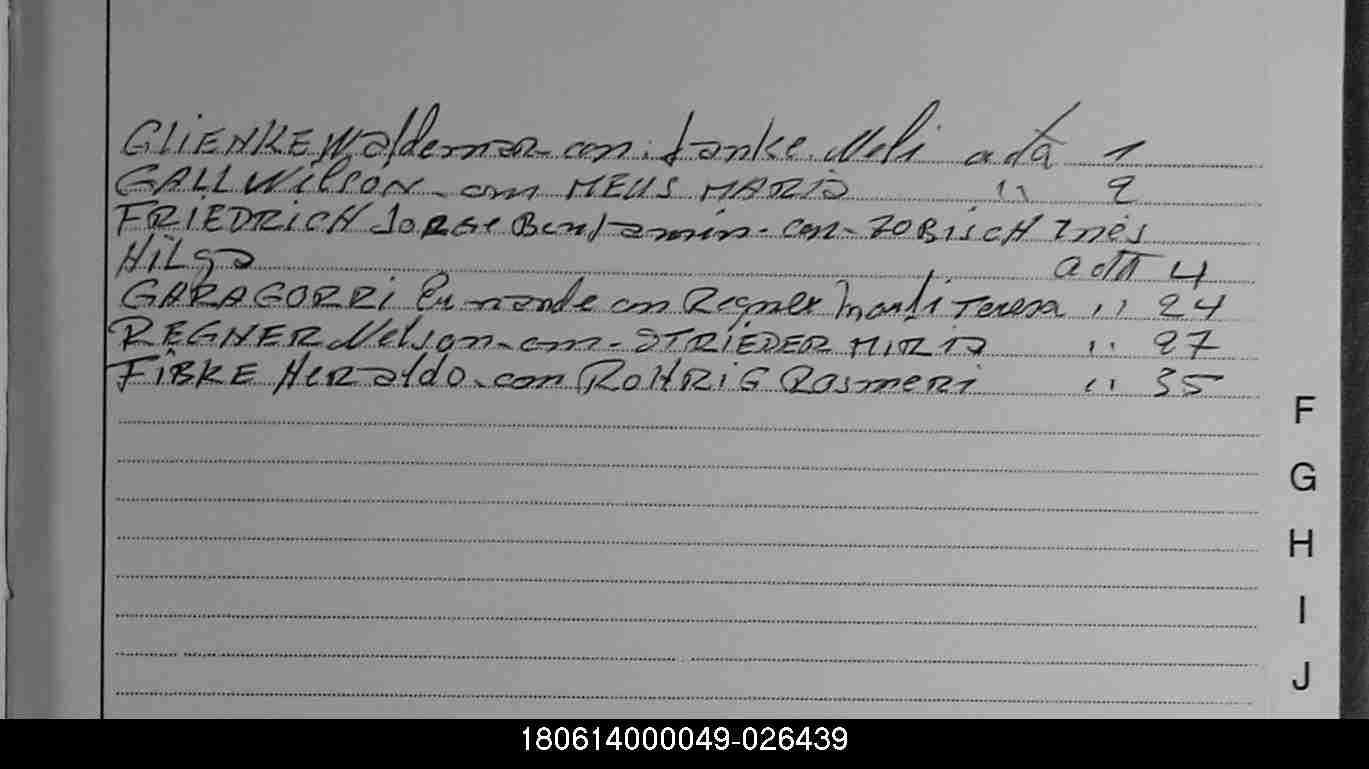 GLIENKE Waldemar con Janke Neli acta 1
GALL WilSON con MEUS MARIA " 2
FRIEDRICH JORGE Benjamin - con - ZOBiSCH Inés
HiLga acta 4
GARAGORRi con Regner Marli Teresa " 24
REGNER Nelson - con - STRIEDER MIRIA " 27
FiBKE HERaldo - con ROHRiG Rosmeri " 35
F
G
H
I
J
180614000049-026439